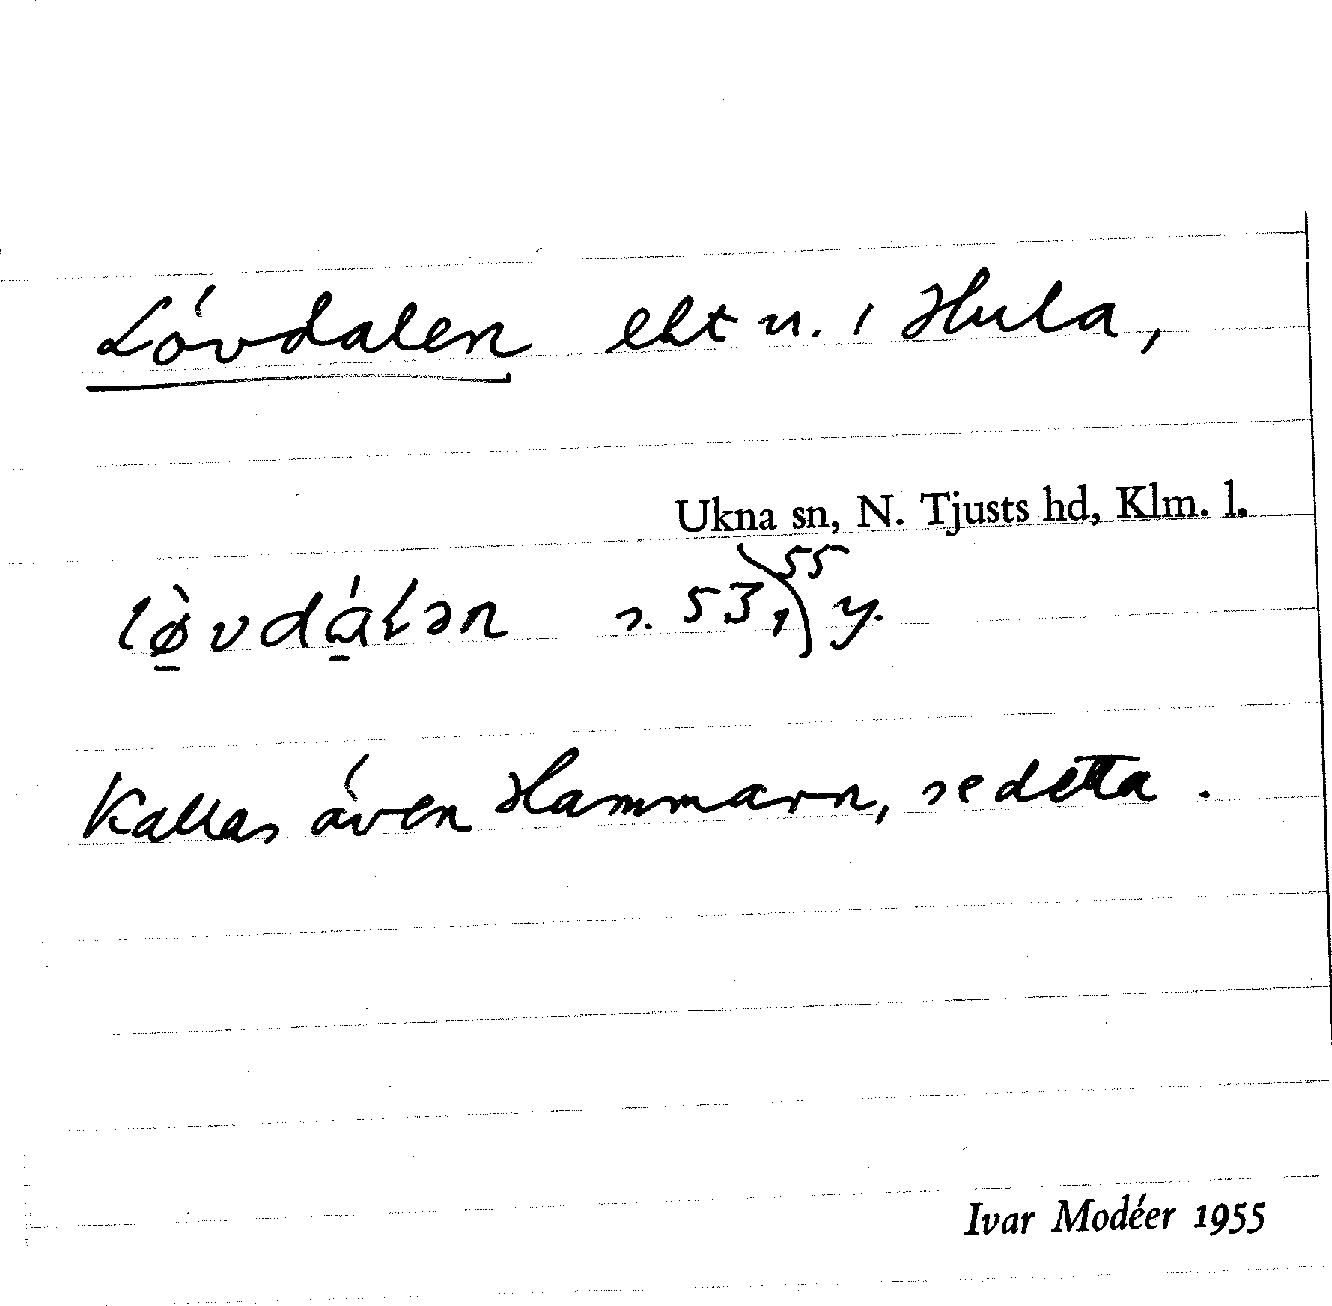 Lövdalen eht n. i Hula,
Ukna sn, N. Tjusts hd, Klm. l.
55
lø̱̀vdá̱lən s. 53, y.
Kallas även Hammarn, se detta.
Ivar Modéer 1955